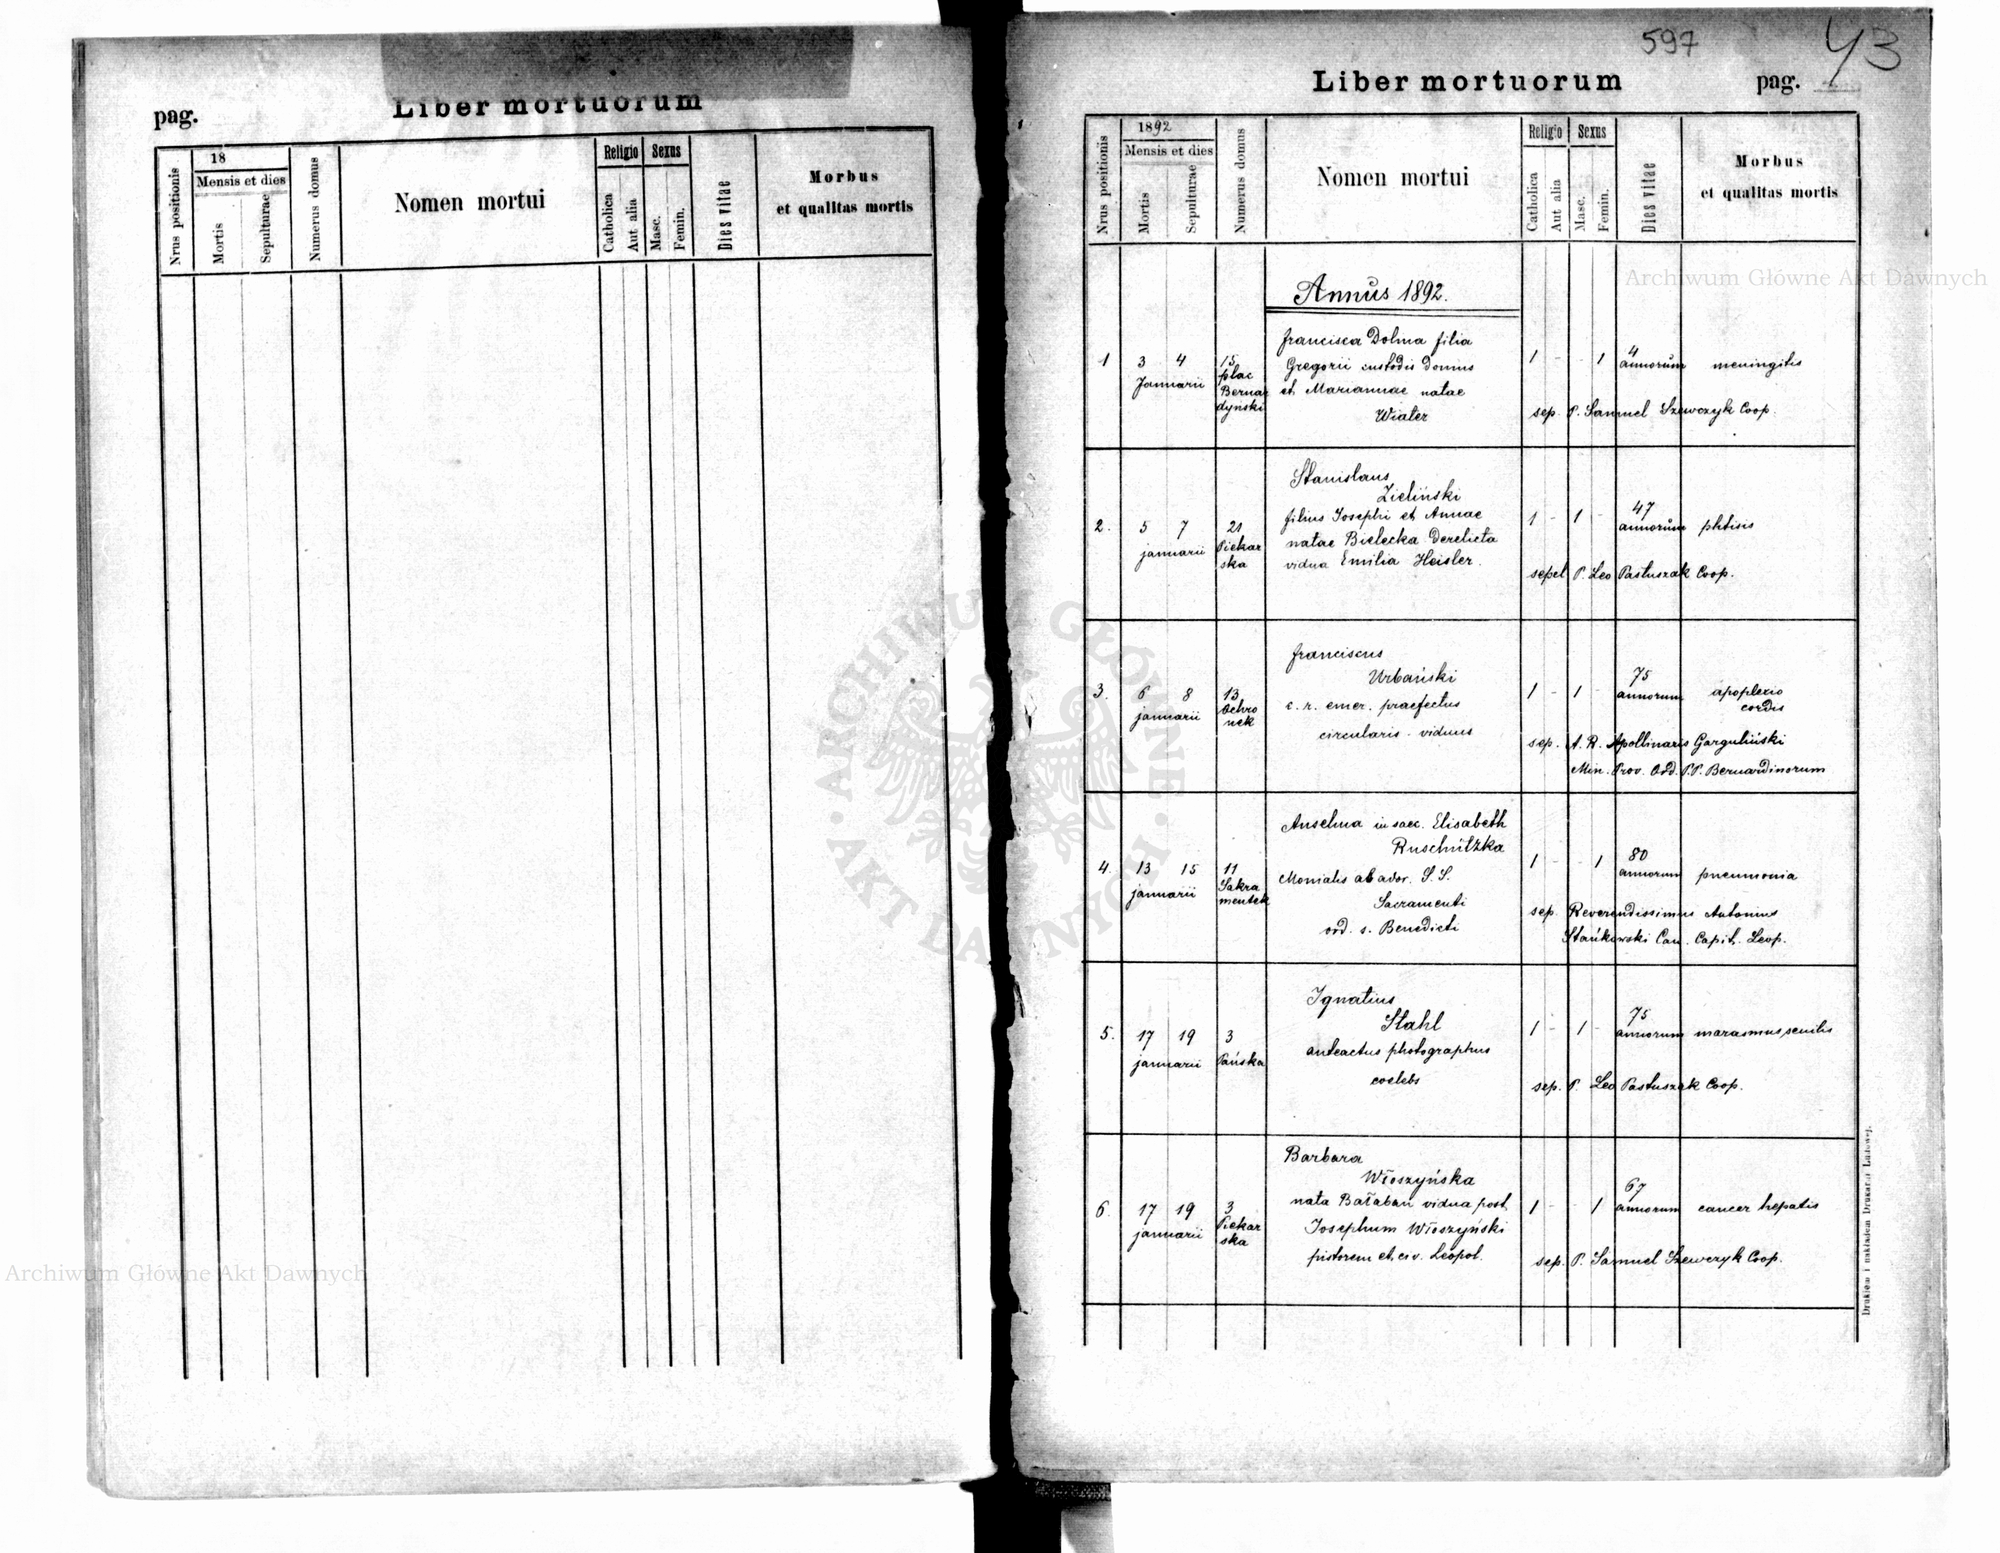 pag.
Liber mortuorum
Nrus positionis
18
Mensis et dies
Mortis
Sepulturae
Numerus domus
Nomen mortui
Religio
Catholica
Aut alia
Sexus
Masc.
Femin.
Dies vitae
Morbus
et qualitas mortis
597
Liber mortuorum
pag. 43
Nrus positionis
1892
Mensis et dies
Mortis
Sepulturae
Numerus domus
Nomen mortui
Religio
Catholica
Aut alia
Sexus
Masc.
Femin.
Dies vitae
Morbus
et qualitas mortis
Annus 1892.
1 3 4 Januarii
15 plac Bernardyński
Francisca Dolma filia
Gregorii custodis domus
et Mariannae natae
Wiater
1 - - 1
4 annorum
meningitis
sep. P. Samuel Szewczyk Coop.
2. 5 7 januarii
21 Piekarska
Stanislaus
Zieliński
filius Josephi et Annae
natae Bielecka derelicta
vidua Emilia Heisler.
1 - 1 -
47 annorum
phtisis
sepel P. Leo Pastuszak Coop.
3. 6 8 januarii
13 Ochronek
Franciscus
Urbański
c. r. emer. praefectus
circularis - viduus
1 - 1 -
75 annorum
apoplexio
cordis
sep. A. R. Apollinaris Garguliński
Min. Prov. Ord. P.P. Bernardinorum
4. 13 15 januarii
11 Sakramentek
Anselma in saec. Elisabeth
Ruschitzka
Monialis ab ador. S. S.
Sacramenti
ord. s. Benedicti
1 - - 1
80 annorum
pneumonia
sep. Reverendissimus Antonius
Stańkowski Can. Capit. Leop.
5. 17 19 januarii
3 Pańska
Ignatius
Stahl
anteactus photographus
coelebs
1 - 1 -
75 annorum
marasmus senilis
sep. P. Leo Pastuszak Coop.
6. 17 19 januarii
3 Piekarska
Barbara
Włoszyńska
nata Bałaban vidua post
Josephum Włoszyński
pistorem et civ. Leopol.
1 - - 1
67 annorum
cancer hepatis
sep. P. Samuel Szewczyk Coop.
Drukiem i nakładem Drukarni Ludowej.
Archiwum Główne Akt Dawnych
ARCHIWUM GŁÓWNE
AKT DAWNYCH
Archiwum Główne Akt Dawnych